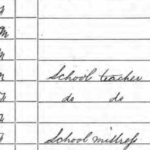 School teacher
do do
School mistress